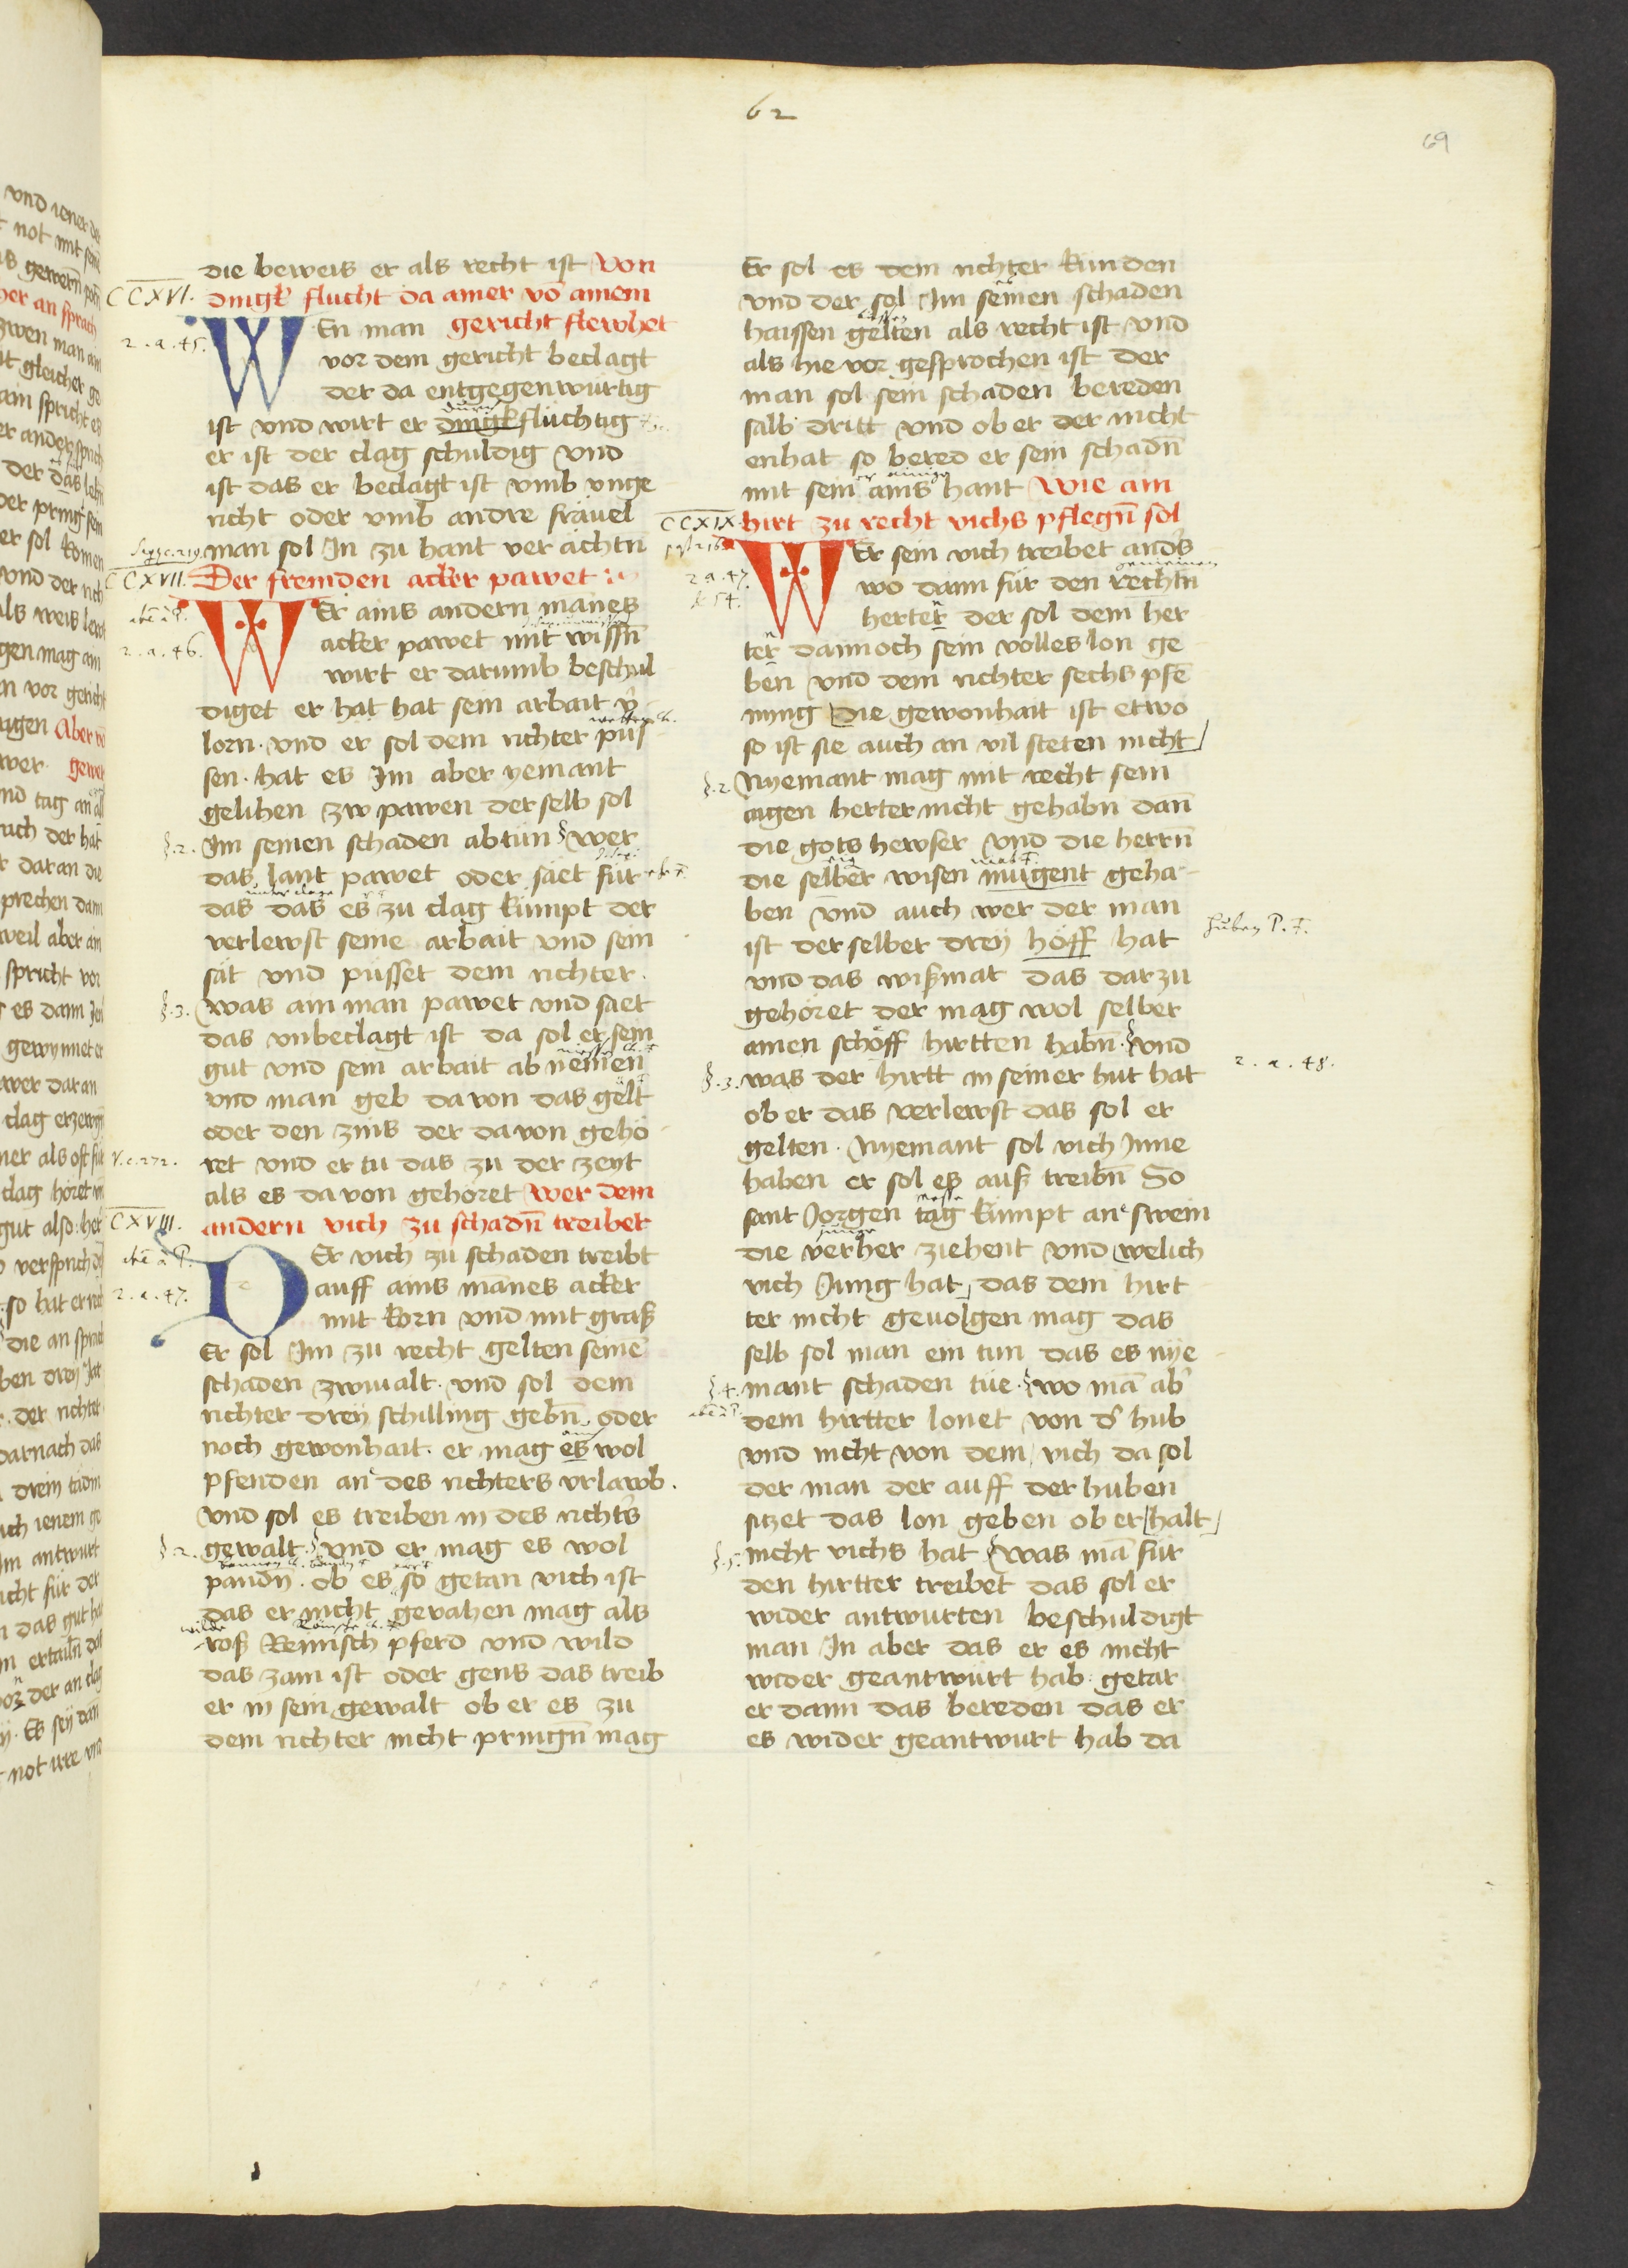 62
69
die beweis er als recht ist Von
CCXVI. dingk flucht da ainer vō ainem
2.a.45. WEn man gericht flewhet
vor dem gericht beclagt
der da entgegenwurtig
ist vnd wirt er dingkfluchtig
er ist der clag schuldig vnd
ist das er beclagt ist vmb vnge
richt oder vmb andre frävel
man sol In zu hant ver ächtn
CCXVII. Der fremden acker pawet
WEr ains andern manes
2.a.46. acker pawet mit wissn̄
wirt er darumb beschul
diget er hat hat sein arbait v̄
lorn. vnd er sol dem richter půs
sen. hat es Im aber yemant
gelihen zw pawen der selb sol
§.2. Im seinen schaden abtun wer
das lant pawet oder säet für
das das es zu clag kumpt der
verlewst seine arbait vnd sein
sät vnd püsset dem richter.
§.3. was ain man pawet vnd säet
das vnbeclagt ist da sol er sein
gut vnd sein arbait ab nemen
vnd man geb da von das gelt
oder den zins der da von gehö
ret vnd er tu das zu der zeyt
als es da von gehöret Wer dem
CXVIII. andern vich zu schadn̄ treibet
DEr vich zu schaden treibt
2.a.47. auff ains mannes acker
mit korn vnd mit graß
Er sol Im zu recht gelten seine
schaden zwiualt. vnd sol dem
richter drey schilling gebn̄ oder
noch gewonhait. er mag es wol
pfenden an des richters vrlawb.
vnd sol es treiben in des richts
§.2. gewalt. vnd er mag es wol
pandn̄. ob es so getan vich ist
das er nicht gevahen mag als
roß Reinisch pferd vnd wild
das zam ist oder gens das treib
er in sein gewalt ob er es zu
dem richter nicht pringn̄ mag
Er sol es dem richter kunden
vnd der sol Im seinen schaden
haissen gelten als recht ist vnd
als hie vor gesprochen ist der
man sol sein schaden bereden
salb dritt vnd ob er der nicht
enhat so bered er sein schadn̄
mit sein ains hant Wie ain
CCXIX. hirt zu recht vichs pflegn̄ sol
WEr sein vich treibet anders
2.a.47. wo dann für den rechtn
herter der sol dem her
ter dannoch sein volles lon ge
ben vnd dem richter sechs pfe
ning Die gewonhait ist etwo
so ist sie auch an vil steten nicht
§.2. Nyemant mag mit recht sein
aigen herter nicht gehabn dan̄
die gots hewser vnd die herrn̄
die selber wisen mugent geha
ben vnd auch wer der man
ist der selber drey höff hat
huben P. F.
vnd das wißmat das dar zu
gehöret der mag wol selber
ainen schöff hirtten habn̄. vnd
§.3. was der hirtt in seiner hut hat
2.a.48.
ob er das verlewst das sol er
gelten. Nyemant sol vich Inne
haben er sol es auß treibn̄ So
sant Jorgen tag kumpt an swein
die verher ziehent vnd welich
vich Jung hat das dem hirt
ter nicht geuolgen mag das
selb sol man ein tun das es nye
§.4. mant schaden tüe. wo mā ab
dem hirtter lonet von d hub
vnd nicht von dem vich da sol
der man der auff der huben
sitzet das lon geben ob er halt
§.5. nicht vichs hat was mā für
den hirtter treibet das sol er
wider antwurten beschuldigt
man In aber das er es nicht
wider geantwürt hab. getar
er dann das bereden das er
es wider geantwurt hab da